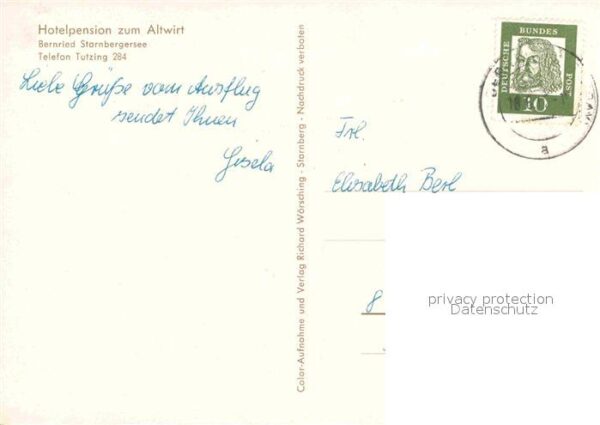 Hotelpension zum Altwirt
Bernried Starnbergersee
Telefon Tutzing 284
Liebe Grüße vom Ausflug
sendet Ihnen
Gisela
Color-Aufnahme und Verlag Richard Wörsching · Starnberg · Nachdruck verboten
DEUTSCHE BUNDES POST
10
a
Frl.
Elisabeth Berl
8
privacy protection
Datenschutz